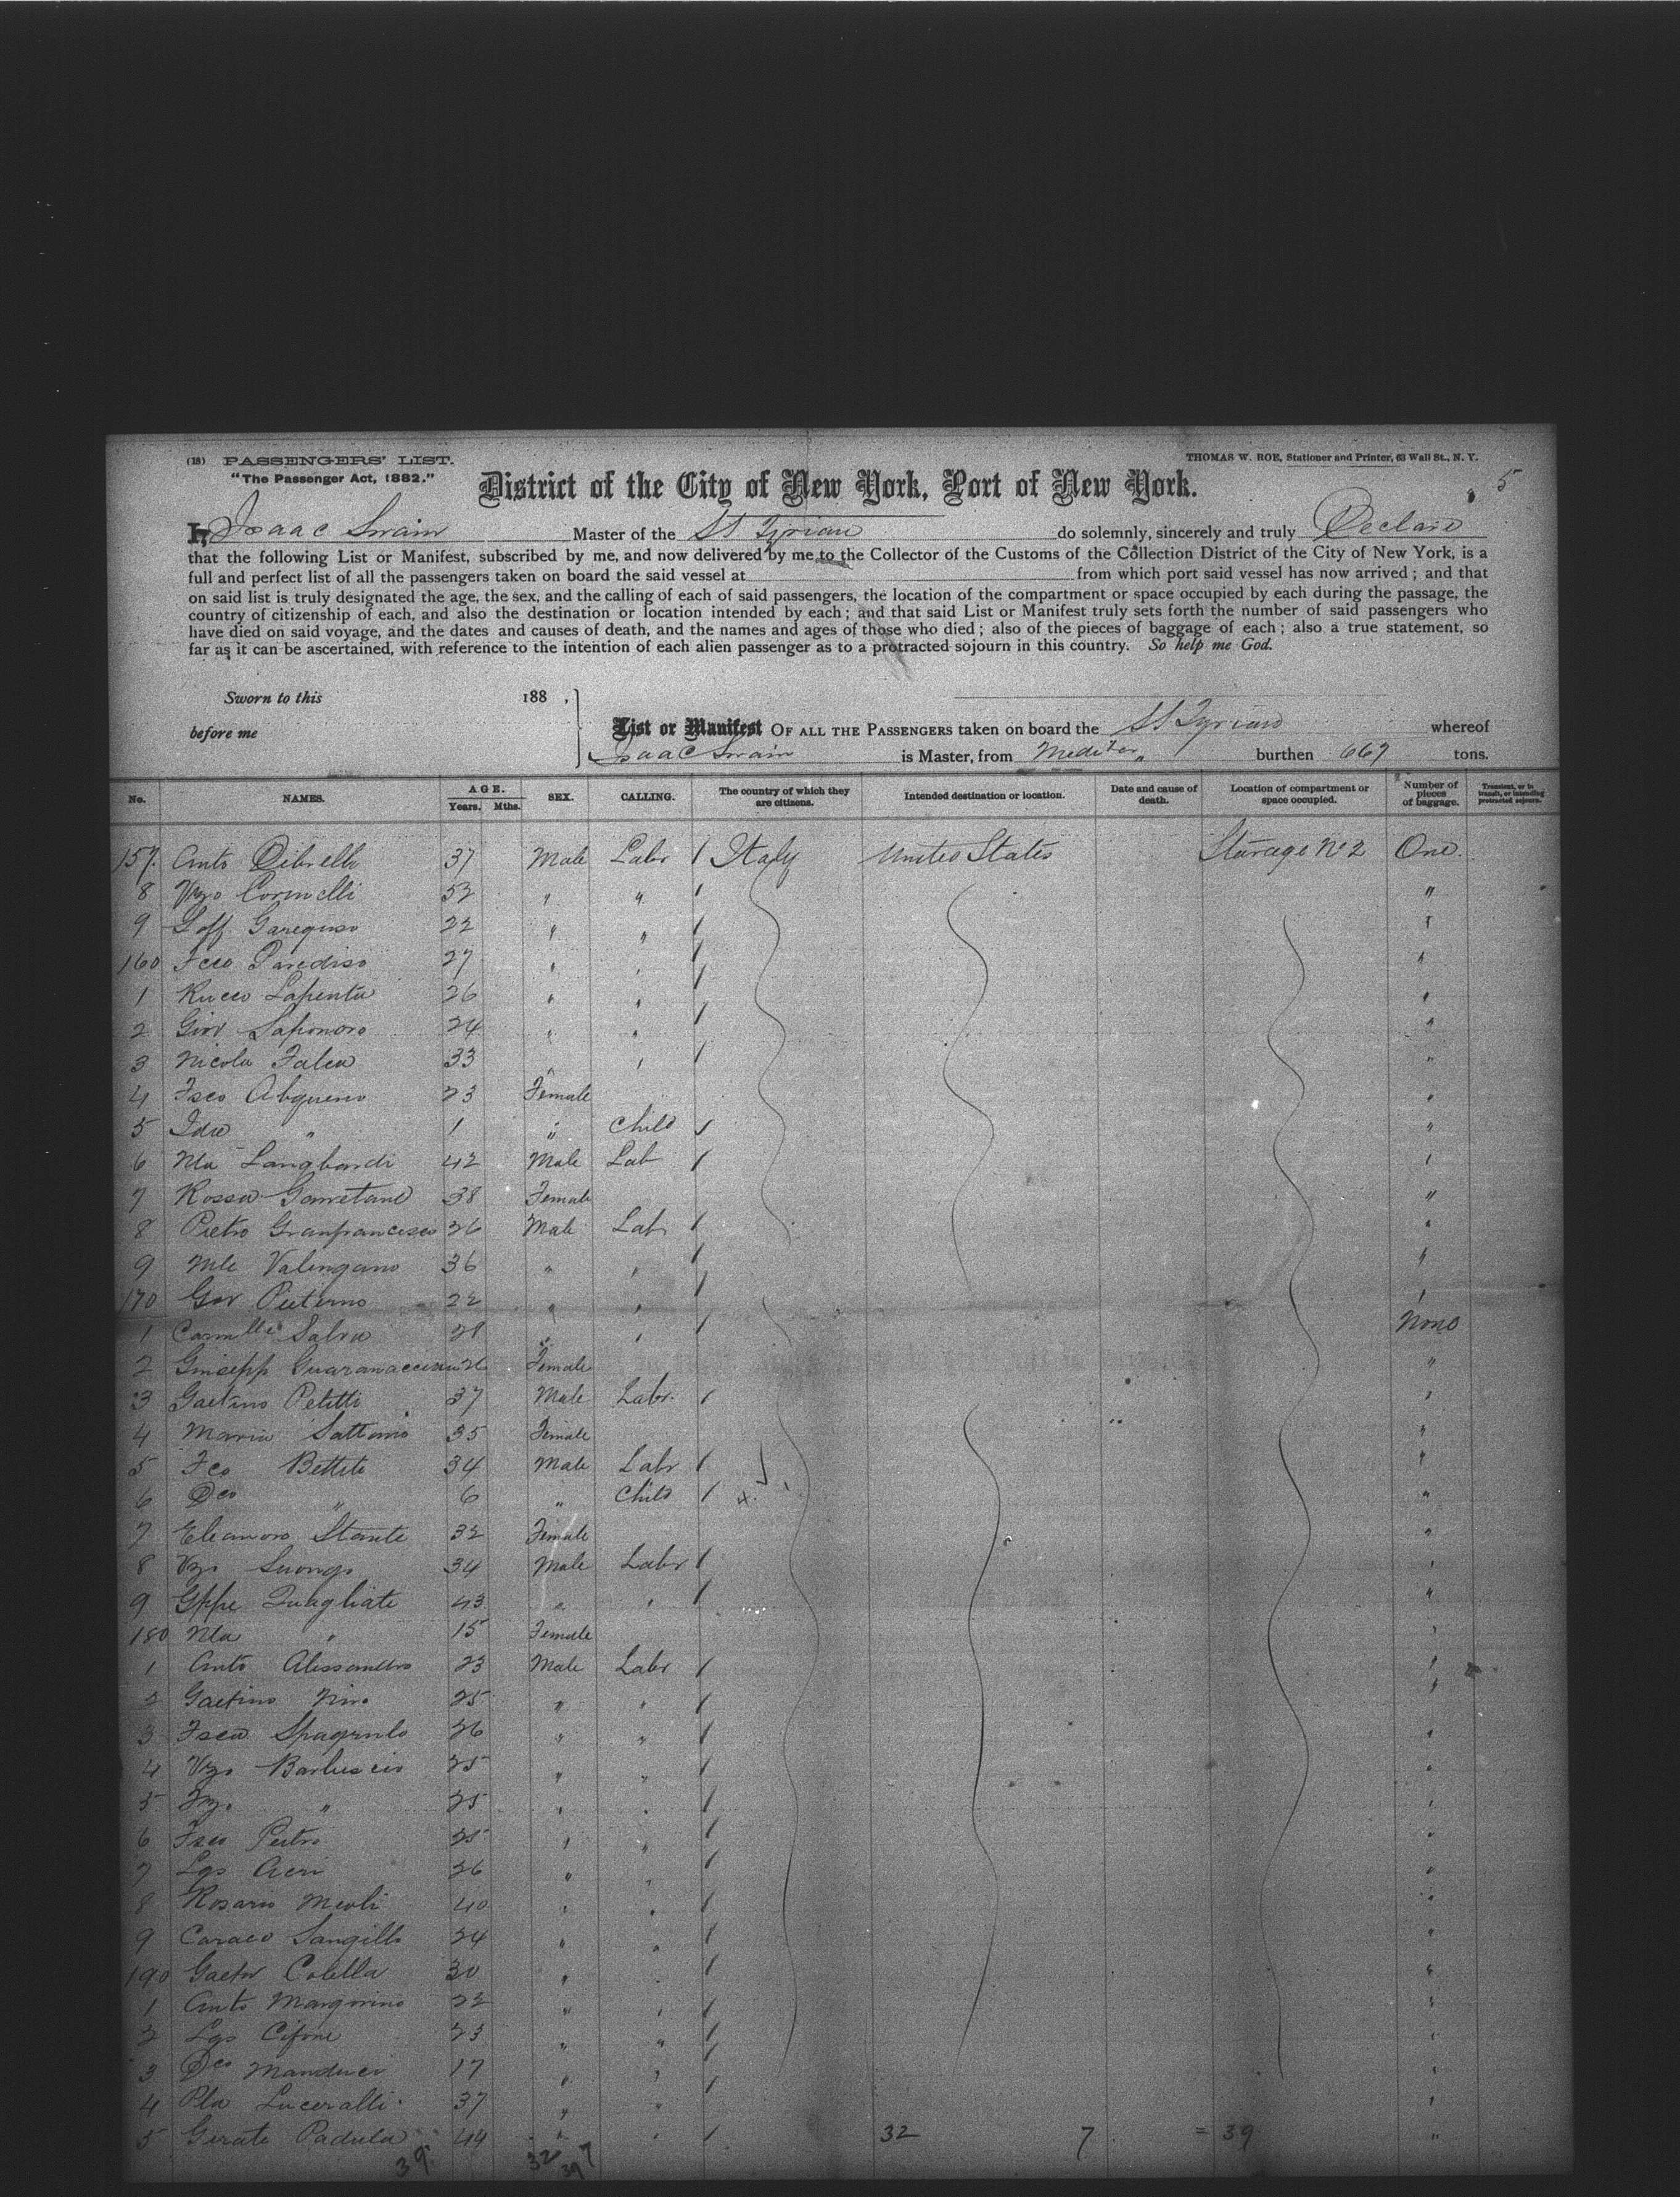 (18) PASSENGERS' LIST.
THOMAS W. ROE, Stationer and Printer, 63 Wall St., N. Y.
"The Passenger Act, 1882."
5
District of the City of New York, Port of New York.
I, Isaac Swain Master of the SS Tyrian do solemnly, sincerely and truly Declare
that the following List or Manifest, subscribed by me, and now delivered by me to the Collector of the Customs of the Collection District of the City of New York, is a
full and perfect list of all the passengers taken on board the said vessel at from which port said vessel has now arrived; and that
on said list is truly designated the age, the sex, and the calling of each of said passengers, the location of the compartment or space occupied by each during the passage, the
country of citizenship of each, and also the destination or location intended by each; and that said List or Manifest truly sets forth the number of said passengers who
have died on said voyage, and the dates and causes of death, and the names and ages of those who died; also of the pieces of baggage of each; also a true statement, so
far as it can be ascertained, with reference to the intention of each alien passenger as to a protracted sojourn in this country. So help me God.
Sworn to this 188 ,
before me
List or Manifest OF ALL THE PASSENGERS taken on board the SS Tyrian whereof
Isaac Swain is Master, from Mediter burthen 667 tons.
No. NAMES. AGE. Years. Mths. SEX. CALLING. The country of which they are citizens. Intended destination or location. Date and cause of death. Location of compartment or space occupied. Number of pieces of baggage. Transient, or in transit, or intending protracted sojourn.
157. Anto Dibrello 37 Male Labr / Italy United States Sturage No 2 One.
8 Vzo Corinelli 53 " " / "
9 22 " " / "
160 Paradiso 27 " " / "
1 Lapenta 26 " " / "
2 Giov Saponoro 24 " " / "
3 Nicola Falco 33 " " / "
4 Fsco 23 Female "
5 Ida " 1 " Child / "
6 Nla Langbardi 42 Male Lab / "
7 Rossa 38 Female "
8 Pietro Granfrancesco 26 Male Labr / "
9 Mle Valengano 36 " " / "
170 Gov 22 " " / "
1 Salva 28 " " / None
2 Giusepp 26 Female "
3 Gaetino Petitti 37 Male Labr. / "
4 Maria 35 Female "
5 Fco Bettite 34 Male Labr / "
6 Dco " 6 " Child / "
7 Eleanoro Stante 32 Female "
8 Vzo Suongo 34 Male Labr / "
9 Gppe Quagliate 43 " " / "
180 Nla " 15 Female "
1 Anto Alessandro 23 Male Labr / "
2 Gaetino Nino 25 " " / "
3 Fsco Spagnulo 26 " " / "
4 Vzo Barbuscio 25 " " / "
5 " 25 " " / "
6 Fsco Pietro 25 " " / "
7 Lgs Aceri 26 " " / "
8 Rosario Meoli 40 " " / "
9 Sangillo 24 " " / "
190 Gaetn Colella 30 " " / "
1 Anto Mangorino 22 " " / "
2 Lgs Cifone 23 " " / "
3 Dco Manduci 17 " " / "
4 Pla Luceralli 37 " " / "
5 Gerate Padula 44 " " / 32 7 = 39 "
39. 32 7
39